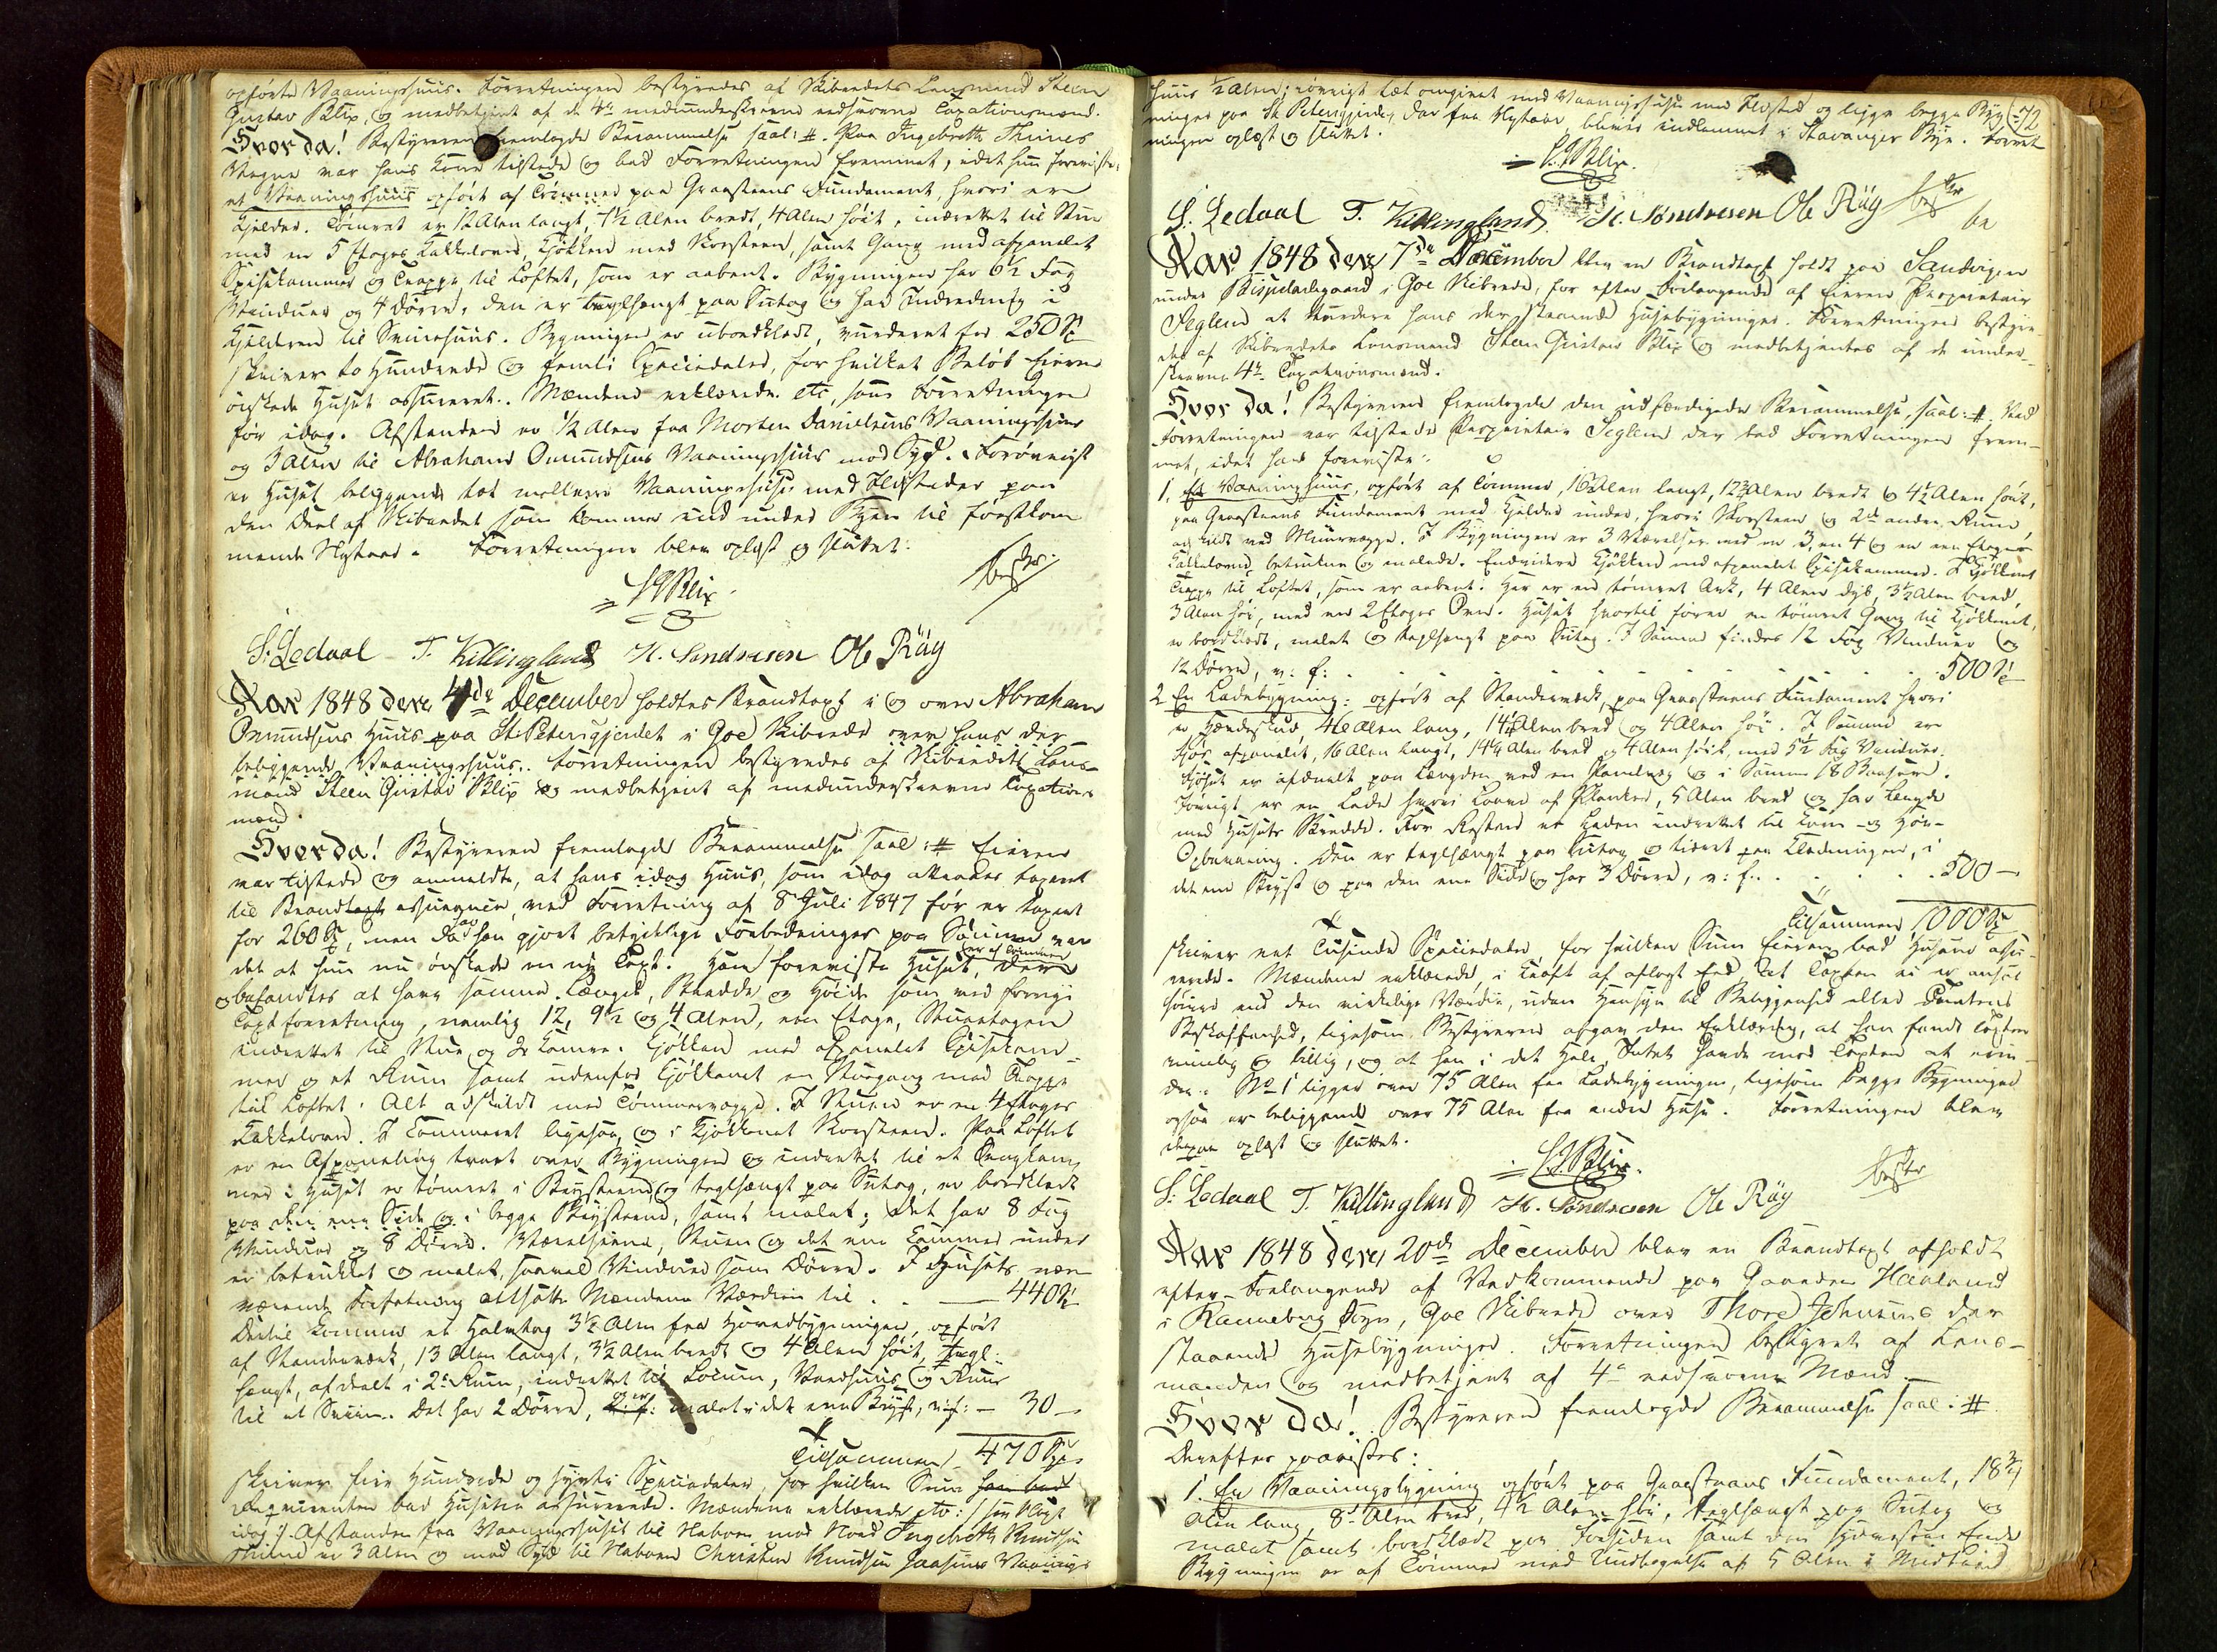 opførte Vaaningshuus. Forretningen bestyredes af Skibredets Lensmand Steen
Gustav Blix, og medbetjent af de 4re medunderskrevne edsvorne Taxationsmænd.
Hvor da! Bestyreren fremlagde Berammelse saal: #. Paa Ingebreth Thimes
Vegne var hans Kone tilstede og bad Forretningen fremmet, idet hun foreviste,
et Vaaningshuus opført af Tømmer paa Graasteens Fundament, hvori er
Kjelder. Tømret er 12 Alen langt, 7½ Alen bredt, 4 Alen høit, indrettet til Stue
med en 5 Etages Kakkelovn, Kjøkken med Skorsteen, samt Gang med afpanelet
Spisekammer og Trappe til Loftet, som er aabent. Bygningen har 6½ Fag
Vinduer og 4 Dørre, den er teglhængt paa Sutag og har Indredning i
Kjelderen til Svinehuus. Bygningen er ubordklædt, vurderet for 250 Sp
skriver to Hundrede og femti Speciedaler, for hvilket Beløb Eieren
ønskede Huset assureret. Mændene erklærede etc, som Forretningen
før idag. Afstanden er ½ Alen fra Morten Danielsens Vaaningshuus
og 3 Alen til Abraham Omundsens Vaaningshuus mod Syd. Forøvrigt
er Huset beliggende tæt mellem Vaaningshuse med Ildsteder paa
den Deel af Skibredet som kommer ind under Byen til førstkom
mende Nytaar. Forretningen blev oplæst og sluttet.
SGBlix
S: Ledaal T. Killingland H. Søndresen Ole Røÿ
Aar 1848 den 4de December holdtes Brandtaxt i og over Abraham
Omundsens Huus paa St Petersgjerdet i Goe Skibrede over hans der
beliggende Vaaningshuus. Forretningen bestyredes af Skibredets Lens-
mand Steen Gustav Blix og medbetjent af medunderskrevne Taxations
mænd.
Hvor da! Bestyreren fremlagde Berammelse saal: # Eieren
var tilstede og anmeldte, at hans idag Huus, som idag attraaes taxeret
til Brandassurance, ved Forretning af 8 Juli 1847 før er taxeret
for 260 Sp, men da han har gjort betydelige Forbedringer paa Samme var
det at han nu ønskede en ny Taxt. Han foreviste Huset, der er af Tømmer
og befandtes at have samme Længde, Bredde og Høide som ved forrige
Taxtforretning, nemlig 12, 9½ og 4 Alen, een Etage, Stueetagen
indrettet til Stue og et Kamer. Kjøkken med afpanelet Spisekam-
mer og et Rum samt udenfor Kjøkkenet en Svalgang med Trappe
til Loftet. Alt adskildt med Tømmervægge. I Stuen er en 4 Etages
Kakkelovn. I Kammeret ligesaa, og i Kjøkkenet Skorsteen. Paa Loftet
er en Afpaneling tvert over Bygningen og indrettet til et Sengkam
mer i Huset er tømret i Brystene og teglhængt paa Sutag, er bordklædt
paa den ene Side og i begge Brystene, samt malet; det har 8 Fag
Vinduer og 8 Dørre. Værelserne, Stuen og det ene Kammer under
er betrukket og malet, saavel Vinduer som Dørre. I Husets nær
værende Forfatning ansatte Mændene Værdien til 440 Sp
Dertil kommer et Halvtag 3½ Alen fra Hovedbygningen, opført
af Standerværk, 13 Alen langt, 3½ Alen bredt og 4 Alen høit, tegl-
hængt, afdeelt i 2de Rum, indrettet til Locum, Vedhuus og Huus
til et Sviin. Det har 2 Dørre, og er malet i det ene Bryst, v: f: — 30 —
Tilsammen 470 Sp
skriver fire Hundrede og syvti Speciedaler, for hvilken Sum han bad
Requirenten bad Husene assurerede. Mændene erklærede etc: / see No 1
idag :/ Afstanden fra Vaaningshuset til Naboen mod Nord Ingebreth Knudsen
Thime er 3 Alen og mod Syd til Naboen Christen Knudsen Haasens Vaanings
huus ½ Alen; iøvrigt tæt omgivet med Vaaningshuse med Ildsted og ligge begge Byg 72
ninger paa St Petersgjerde, der fra Nytaar bliver indlemmet i Stavanger Bye. Forret
ningen oplæst og sluttet.
SGBlix.
S. Ledaal T. Killingland. H. Søndresen Ole Røÿ
Aar 1848 den 7de December blev en Brandtaxt holdt paa Sandvigen
under Bispeladegaard i Goe Skibrede, for efter Forlangende af Eieren Proprietair
Seglem at vurdere hans der staaende Husebygninger. Forretningen bestyre
des af Skibredets Lensmand Steen Gustav Blix og medbetjentes af de under-
skrevne 4re Taxationsmænd.
Hvor da! Bestyreren fremlagde den udfærdigede Berammelse, saal: #. Ved
Forretningen var tilstede Proprietair Seglem der bad Forretningen frem-
met, idet han foreviste:
1. Et Vaaningshuus, opført af Tømmer, 16½ Alen langt, 12¾ Alen bredt og 4½ Alen høit,
paa Graasteens Fundament med Kjelder under, hvori Skorsteen og 2de andre Rum
adskildt ved Muurvægge. I Bygningen er 3 Værelser med en 3, en 4 og en een Etages
Kakkelovn, betrukne og malede. Endvidere Kjøkken med afpanelet Spisekammer. I Kjøkkenet
Trappe til Loftet, som er aabent. Her er en tømret Ark, 4 Alen dyb, 3½ Alen bred,
3 Alen høi, med en 2 Etages Ovn. Huset hvortil fører en tømret Gang til Kjøkkenet,
er bordklædt, malet og teglhængt paa Sutag. I Samme findes 12 Fag Vinduer og
12 Dørre, v: f: . . . . . . . . 500 Sp
2. En Ladebygning: opført af Standerværk, paa Graasteens Fundament hvori
er Hændeskud, 46 Alen lang, 14¼ Alen bred og 4 Alen høi. I Samme er
Fjøs afpanelet, 16 Alen langt, 14¼ Alen bred og 4 Alen høit, med 5½ Fag Vinduer.
Fjøset er afdeelt paa Længden ved en Panelvæg og i Samme 18 Baasere.
Iøvrigt er en Lade hvori Laave af Planker, 5 Alen bred og har Længde
med Husets Bredde. For Resten er Laden indrettet til Korn- og Høe-
Opbevaring. Den er teglhængt paa Sutag og tiæret paa Klædningen, i
det ene Bryst og paa den ene Side og har 3 Dørre, v: f: . . . . . 500 —
Tilsammen 1000 Sp
skriver eet Tusinde Speciedaler for hvilken Sum Eieren bad Husene assu-
rerede. Mændene erklærede, i Kraft af aflagt Eed, at Taxten ei er ansat
høiere end den virkelige Værdie, uden Hensyn til Beliggenhed eller Tomtens
Beskaffenhed, ligesom Bestyreren afgav den Erklæring, at han fandt Taxten
rimelig og billig, og at han i det Hele Intet havde mod Taxten at erin-
dre. No 1 ligger over 75 Alen fra Ladebygningen, ligesom begge Bygninger
ogsaa er beliggende over 75 Alen fra andre Huse. Forretningen blev
derpaa oplæst og sluttet.
SGBlix.
S: Ledaal T. Killingland H. Søndresen Ole Røÿ
Aar 1848 den 20de December blev en Brandtaxt afholdt
efter Forlangende af Vedkommende paa Gaarden Haaland
i Ranneberg Sogn, Goe Skibrede over Thore Johnsens der
staaende Husebygninger. Forretningen bestyret af Lens-
manden og medbetjent af 4re edsvorne Mænd.
Hvor da! Bestyreren fremlagde Berammelse saal: #
Derefter paavistes:
1. En Vaaningsbygning opført paa Graasteens Fundament, 18¾
Alen lang 8½ Alen bred, 4½ Alen høi, teglhængt paa Sutag og
malet samt bordklædt paa Forsiden samt den sydvestre Ende
Bygningen er af Tømmer med Undtagelse af 5 Alen i Midten